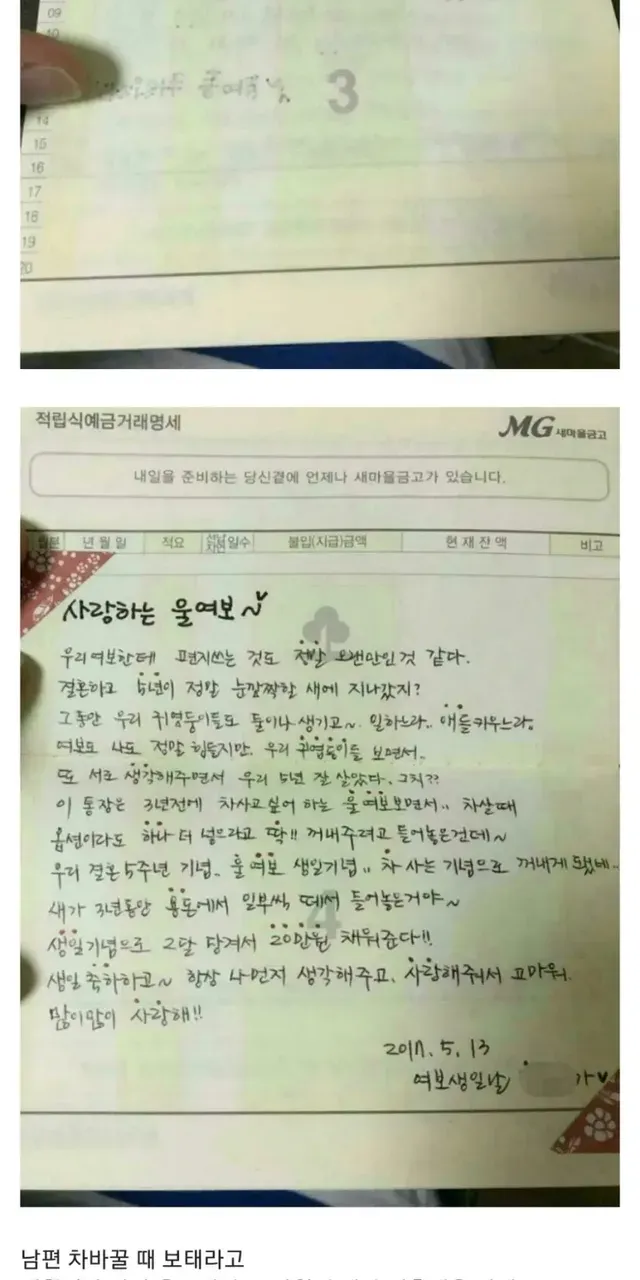 09
10
3
14
15
16
17
18
19
20
적립식예금거래명세
MG 새마을금고
내일을 준비하는 당신곁에 언제나 새마을금고가 있습니다.
년 월 일 적요 일수 불입(지급)금액 현 재 잔 액 비고
사랑하는 울여보~♥
우리여보한테 편지쓰는 것도 정말 오랜만인것 같다.
결혼하고 5년이 정말 눈깜짝할 새에 지나갔지?
그동안 우리 귀염둥이들도 둘이나 생기고~ 일하느라.. 애들키우느라,
여보도 나도 정말 힘들지만, 우리 귀염둥이들 보면서..
또 서로 생각해주면서 우리 5년 잘 살았다. 그치??
이 통장은 3년전에 차사고싶어 하는 울여보보면서.. 차살때
옵션이라도 하나 더 넣으라고 딱!! 꺼내주려고 들어놓은건데~
우리 결혼 5주년 기념.. 울 여보 생일기념.. 차 사는 기념으로 꺼내게 됐네..
내가 3년동안 용돈에서 일부씩 떼서 들어놓은거야~
4
생일기념으로 2달 당겨서 20만원 채워준다!!
생일 축하하고~ 항상 나먼저 생각해주고, 사랑해줘서 고마워.
많이많이 사랑해!!
2017. 5. 13
여보생일날 가♥
남편 차바꿀 때 보태라고